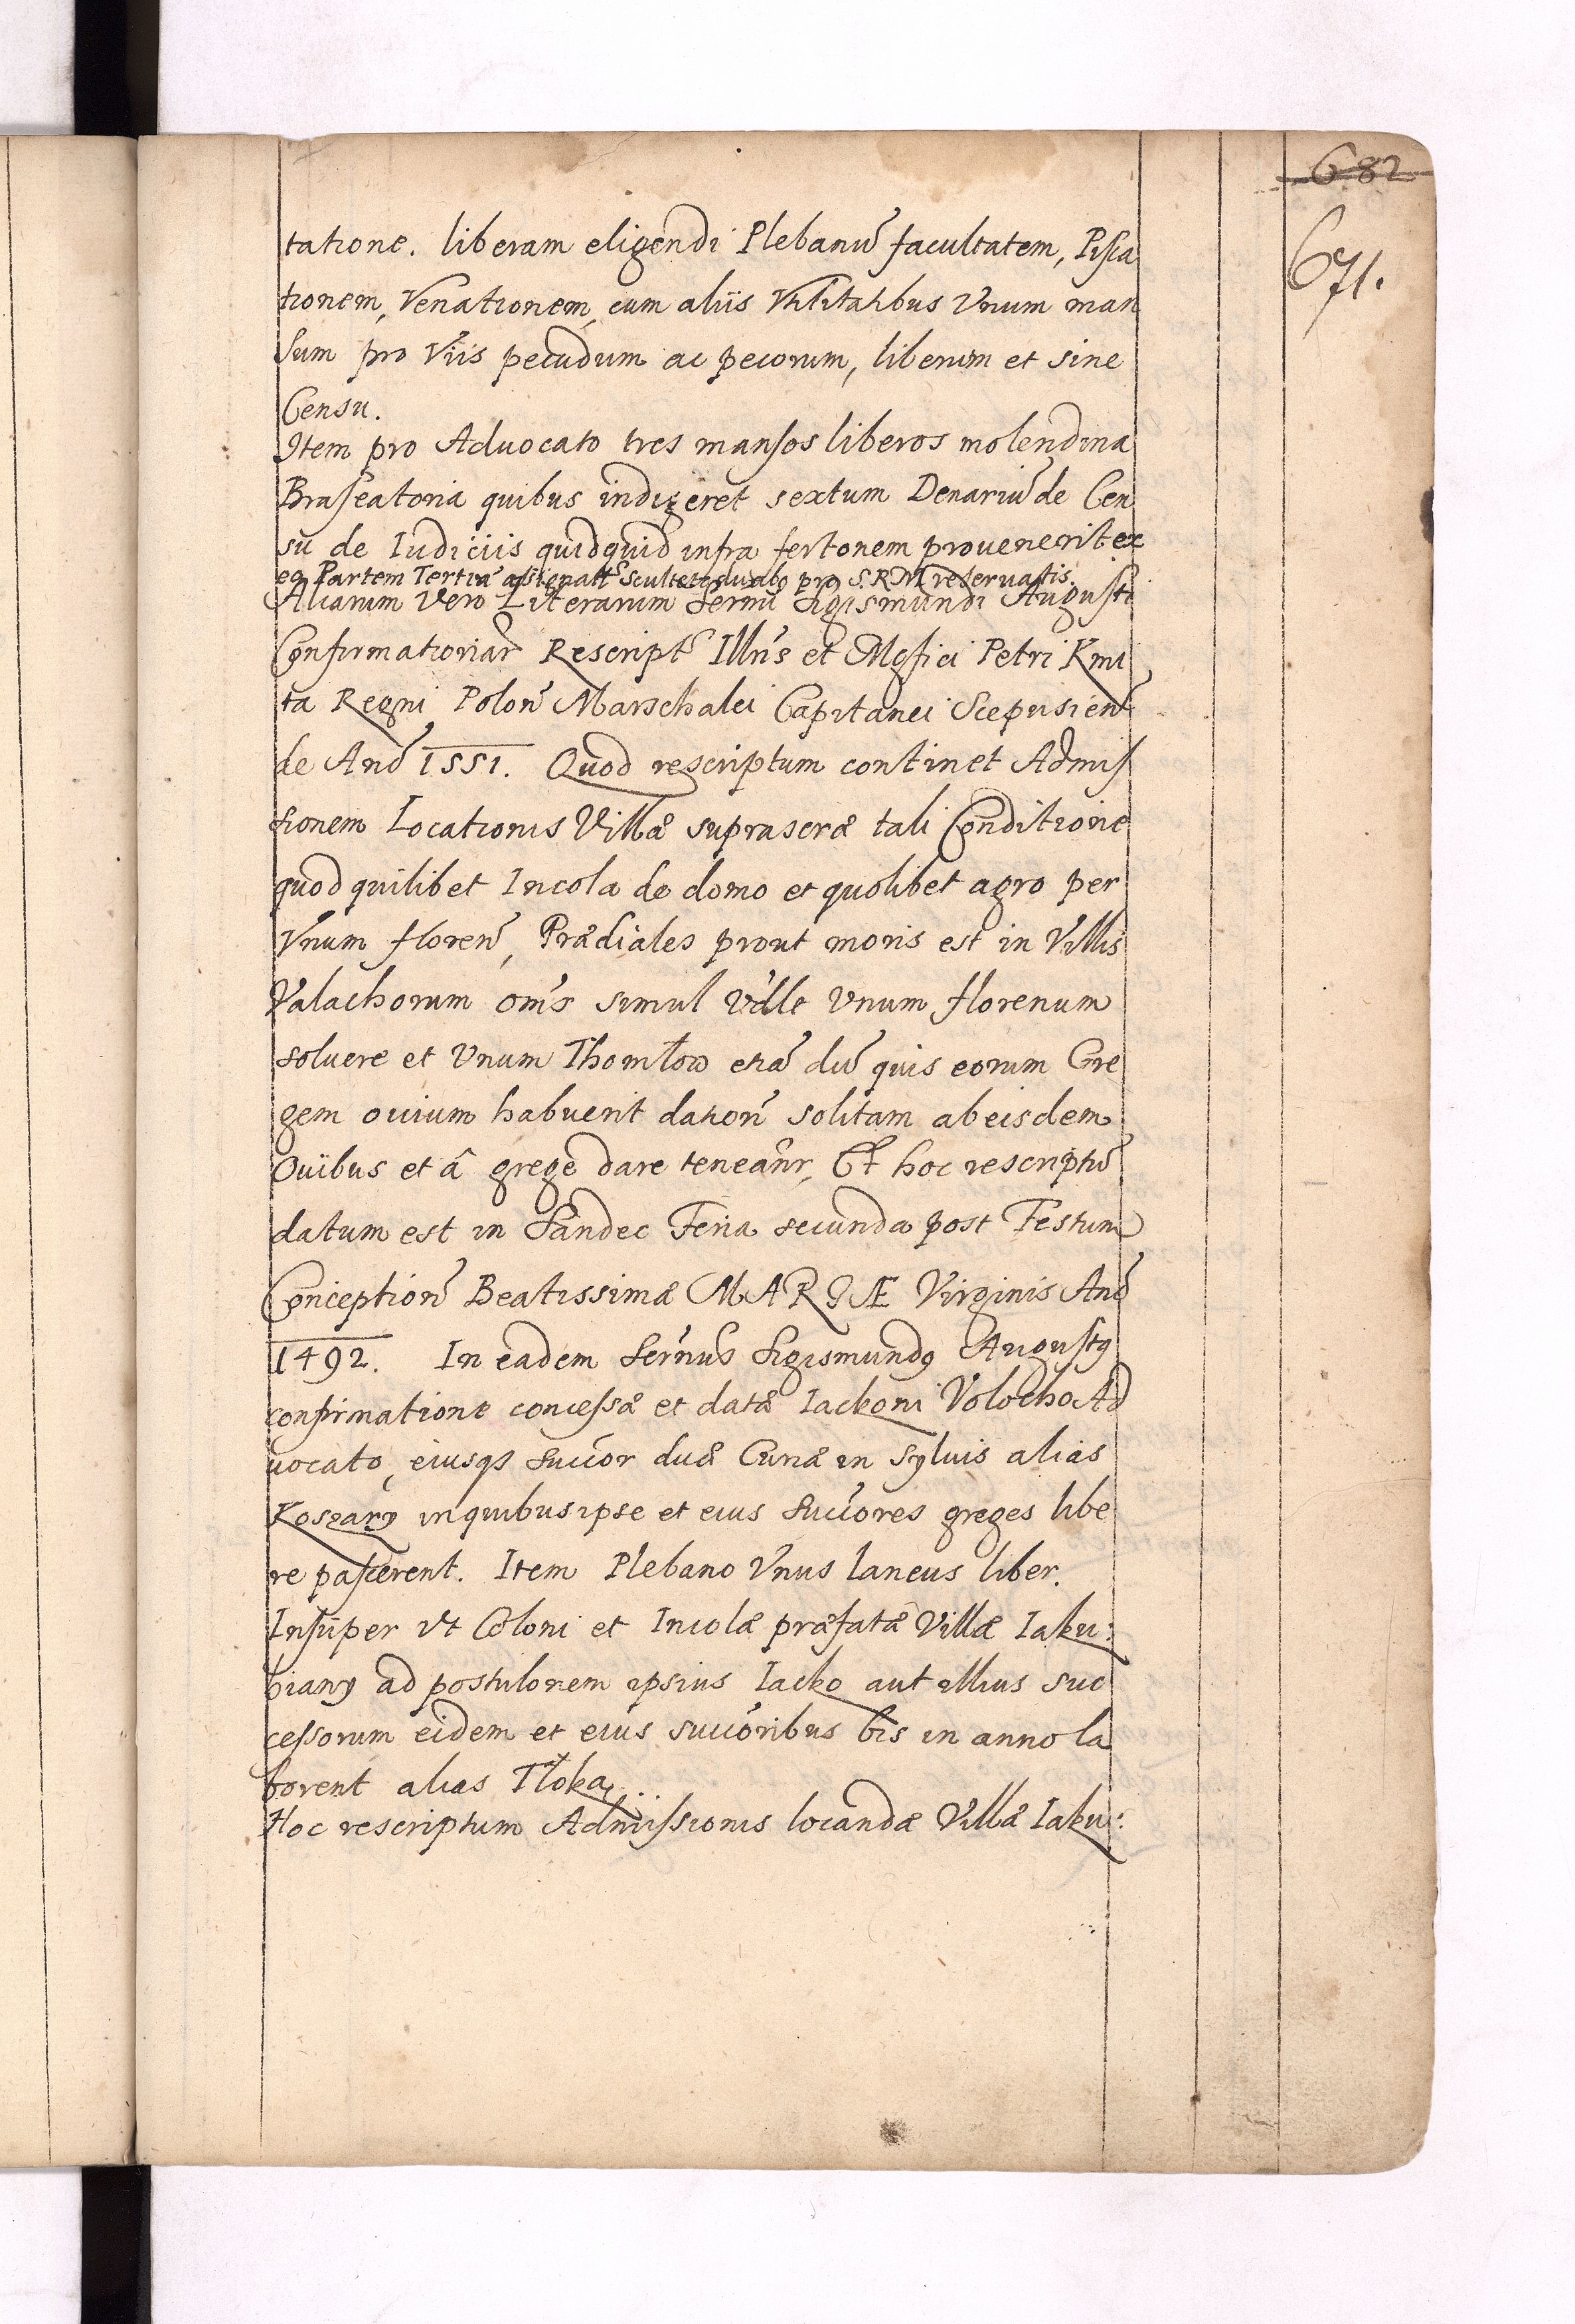 682
671.
tatione. liberam eligendi Plebanũ facultatem, Pisca
tionem, Venationem, cum aliis Vtilitatibus Vnum man
sum pro Viis pecudum ac pecorum, liberum et sine
Censu.
Item pro Aduocato tres mansos liberos molendina
Braseatoria quibus indigeret sextum Denariũ de Cen
su de Iudiciis quidquid infra fertonem prouenerit ex
eo Partem Tertiã Sculteto duabq pro S. R. M. reseruatis.
Aliarum Vero Literarum Sermi Sigismundi Augusti
Confirmationar̃ Rescript̃ Illris et Mgfici Petri Kmi
ta Regni Polon̄ Marschalci Capitanei Scepusien̄
de Anõ 1551. Quod rescriptum continet Admis
sionem Locationis Villæ suprascræ tali Conditione
quod quilibet Incola de domo et quolibet agro per
Vnum floren̄, Prædiales prout moris est in Villis
Valachorum oms simulVille vnum florenum
soluere et Vnum Thomłow etiã dũ quis eorum Gre
gem ouium habuerit dation̄ solitam ab eisdem
Ouibus et â grege dare teneanr, Et hoc rescriptũ
datum est in Sandec Feria secunda post Festum
Conception̄ Beatissimæ MARIÆ Virginis Anõ
1492. In eadem Sermus Sigismundq Augustq
confirmatione concessæ et datæ Iackoni Volocho Ad
uocato, eiusqs succor duæ Curiæ in syluis alias
Koszary in quibus ipse et eius succores greges libe
re pascerent. Item Plebano Vnus laneus liber.
Insuper vt Coloni et Incolæ præfatæ Villæ Iaku:
biany ad postulonem ipsius Iacko aut illius suc
cessorum eidem et eius succoribus bis in anno la
borent alias Tłoka..
Hoc rescriptum Admissionis locandæ Villæ Iaku: